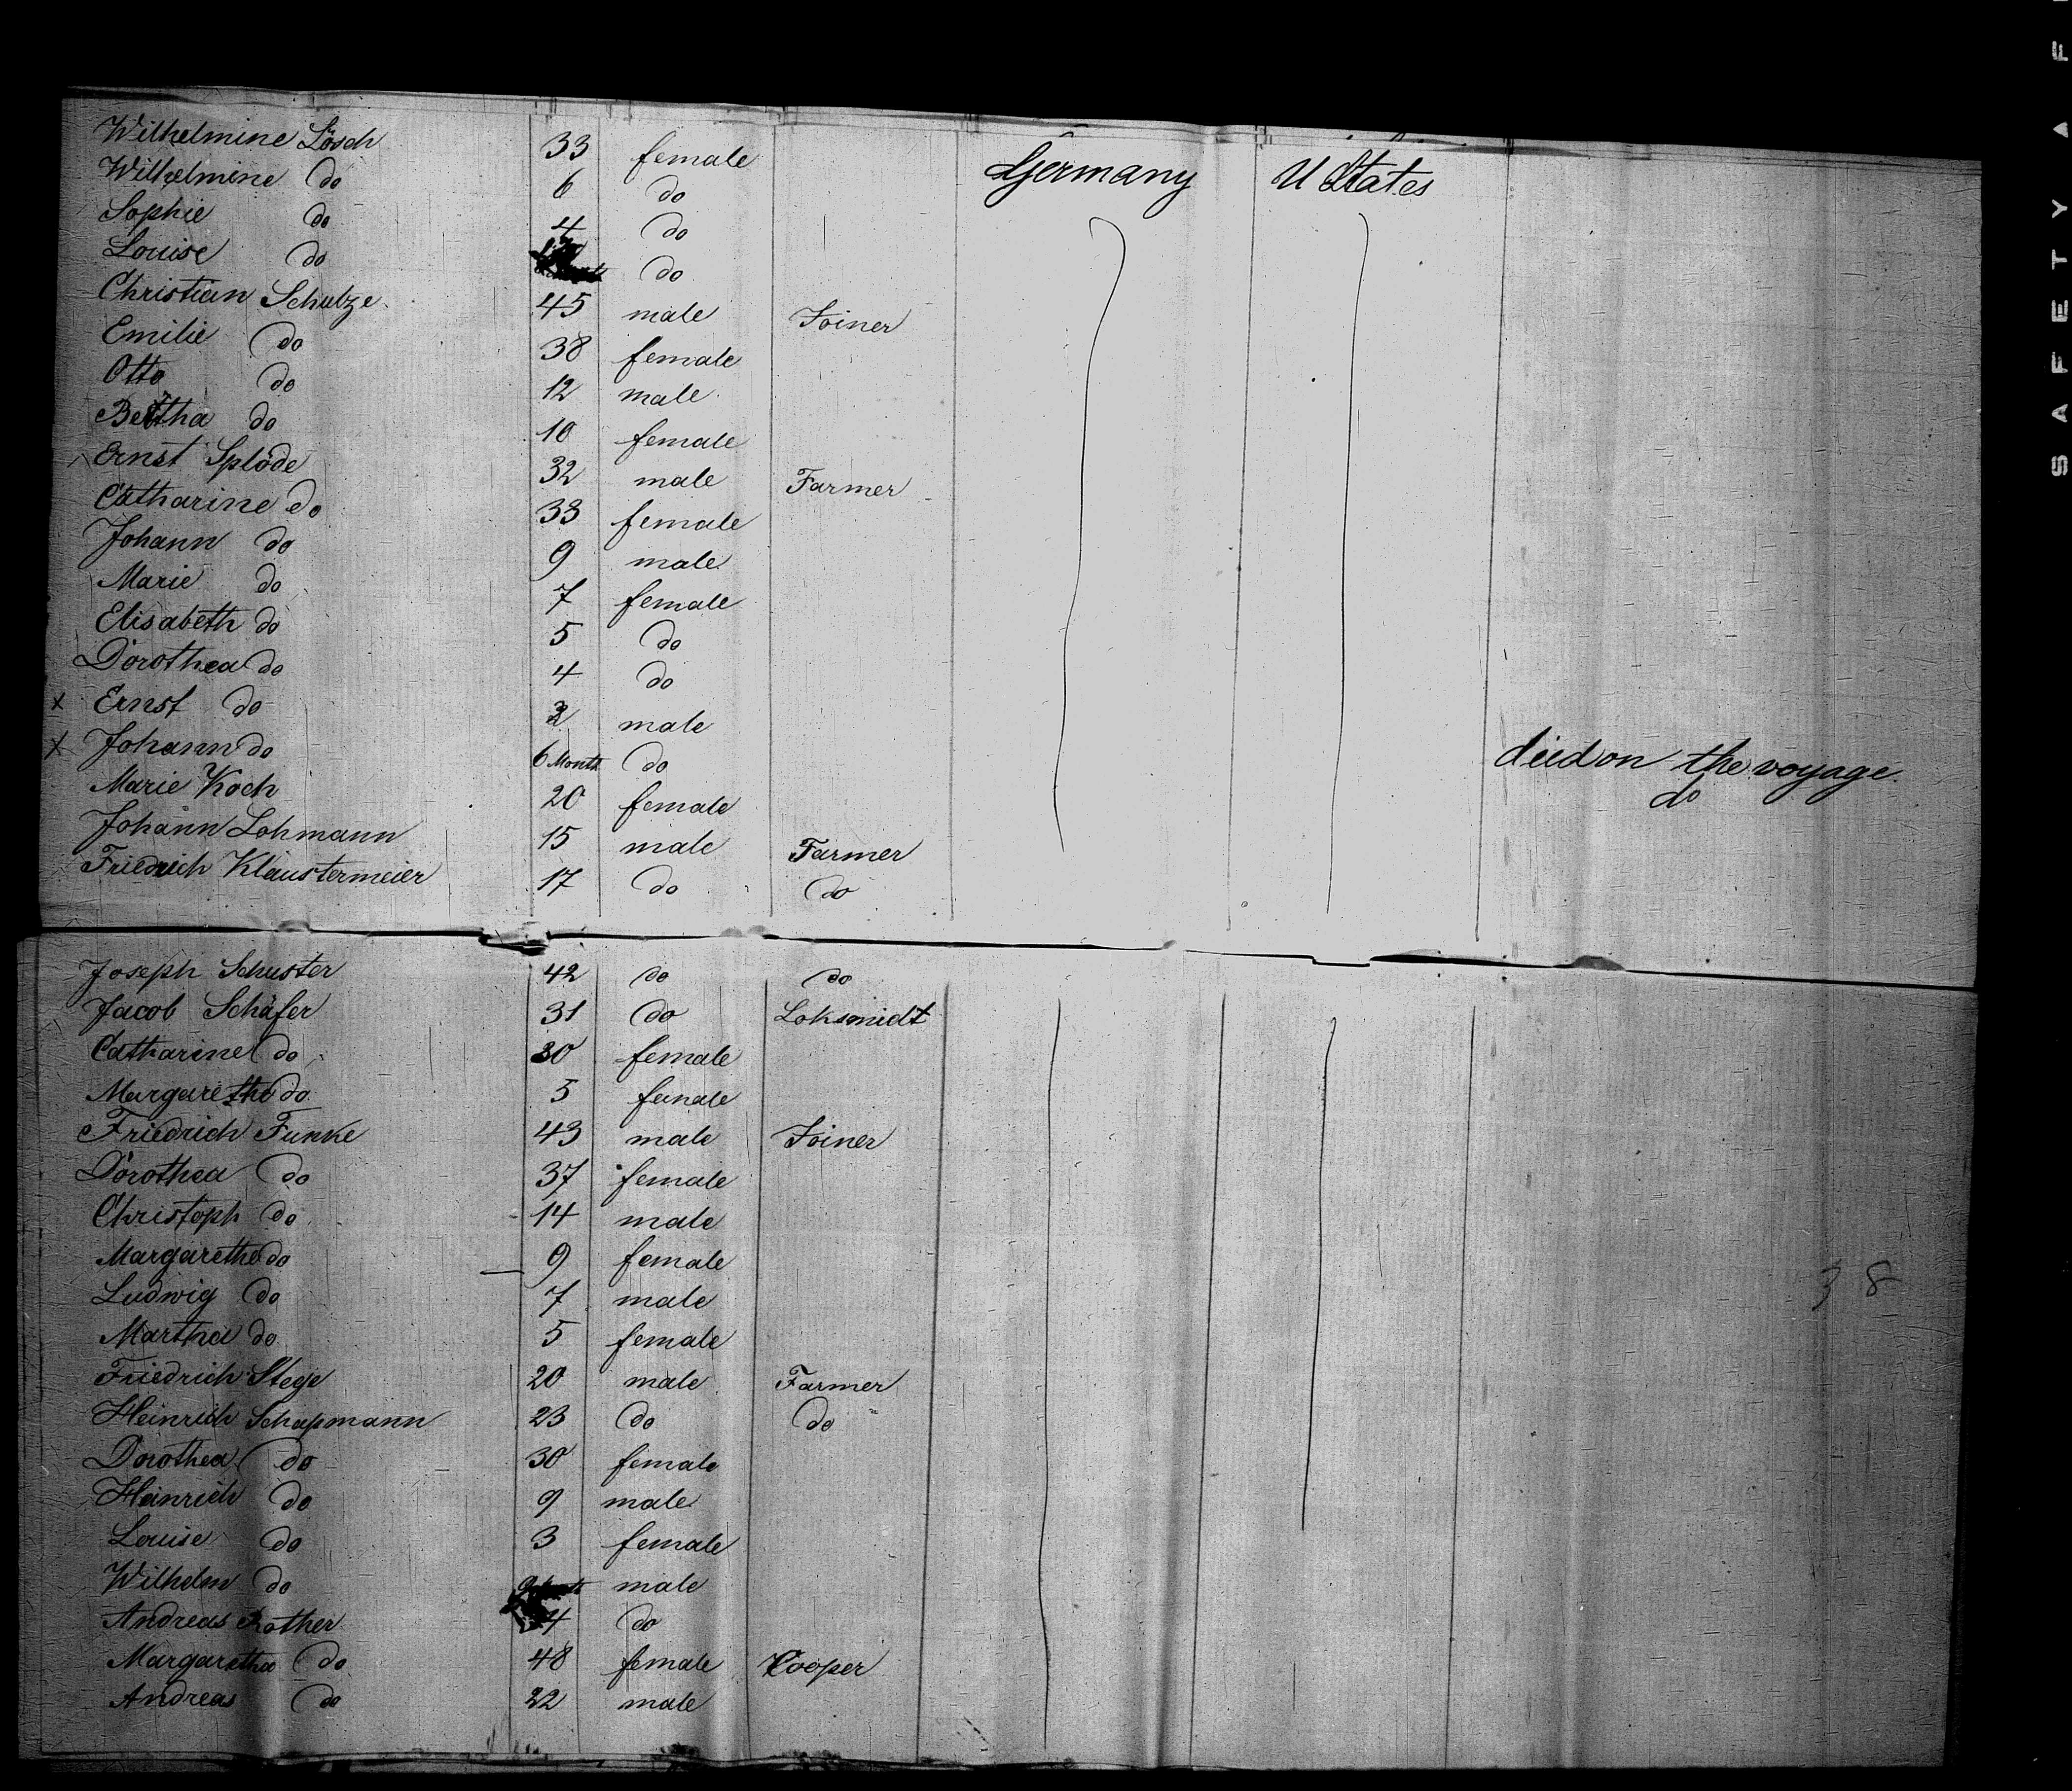 Wilhelmine Lösch 33 female Germany U States
Wilhelmine do 6 do
Sophie do 4 do
Louise do do
Christian Schulze 45 male Joiner
Emilie do 38 female
Otto do 12 male
Bertha do 10 female
Ernst Splöde 32 male Farmer
Catharine do 33 female
Johann do 9 male
Marie do 7 female
Elisabeth do 5 do
Dorothea do 4 do
x Ernst do male died on the voyage
x Johann do 6 Month do do
Marie Koch 20 female
Johann Lohmann 15 male Farmer
Friedrich Klaustermeier 17 do do
Joseph Schuster 42 do do
Jacob Schäfer 31 do Loksmidt
Catharine do 30 female
Margarethe do 5 female
Friedrich Funke 43 male Joiner
Dorothea do 37 female
Christoph do 14 male
Margarethe do 9 female
Ludwig do 7 male
Martha do 5 female
Friedrich Stege 20 male Farmer
Heinrich Schapmann 23 do do
Dorothea do 30 female
Heinrich do 9 male
Louise do 3 female
Wilhelm do male
Andreas Rother do
Margaretha do 48 female Cooper
Andreas do 22 male
38
SAFETY